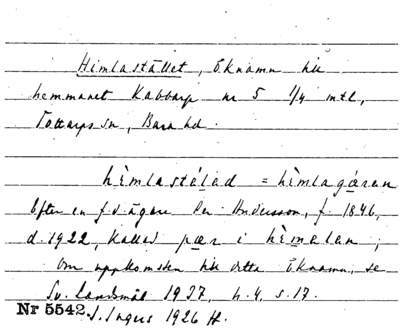 Himlastället, Öknamn till
hemmanet Kabbarp nr 5 1/4 mtl,
Tottarps sn, Bara hd.
hìmlastɛ́ləd = hìmlagɑ́ren
Efter en f.d. ägare Per Andersson, f. 1846,
d. 1922, kallad pær i hìmelen;
om uppkomsten till detta öknamn, se
Sv. landsmål 1937, h. 4, s. 17.
Nr 5542. S. Ingers 1926 H.